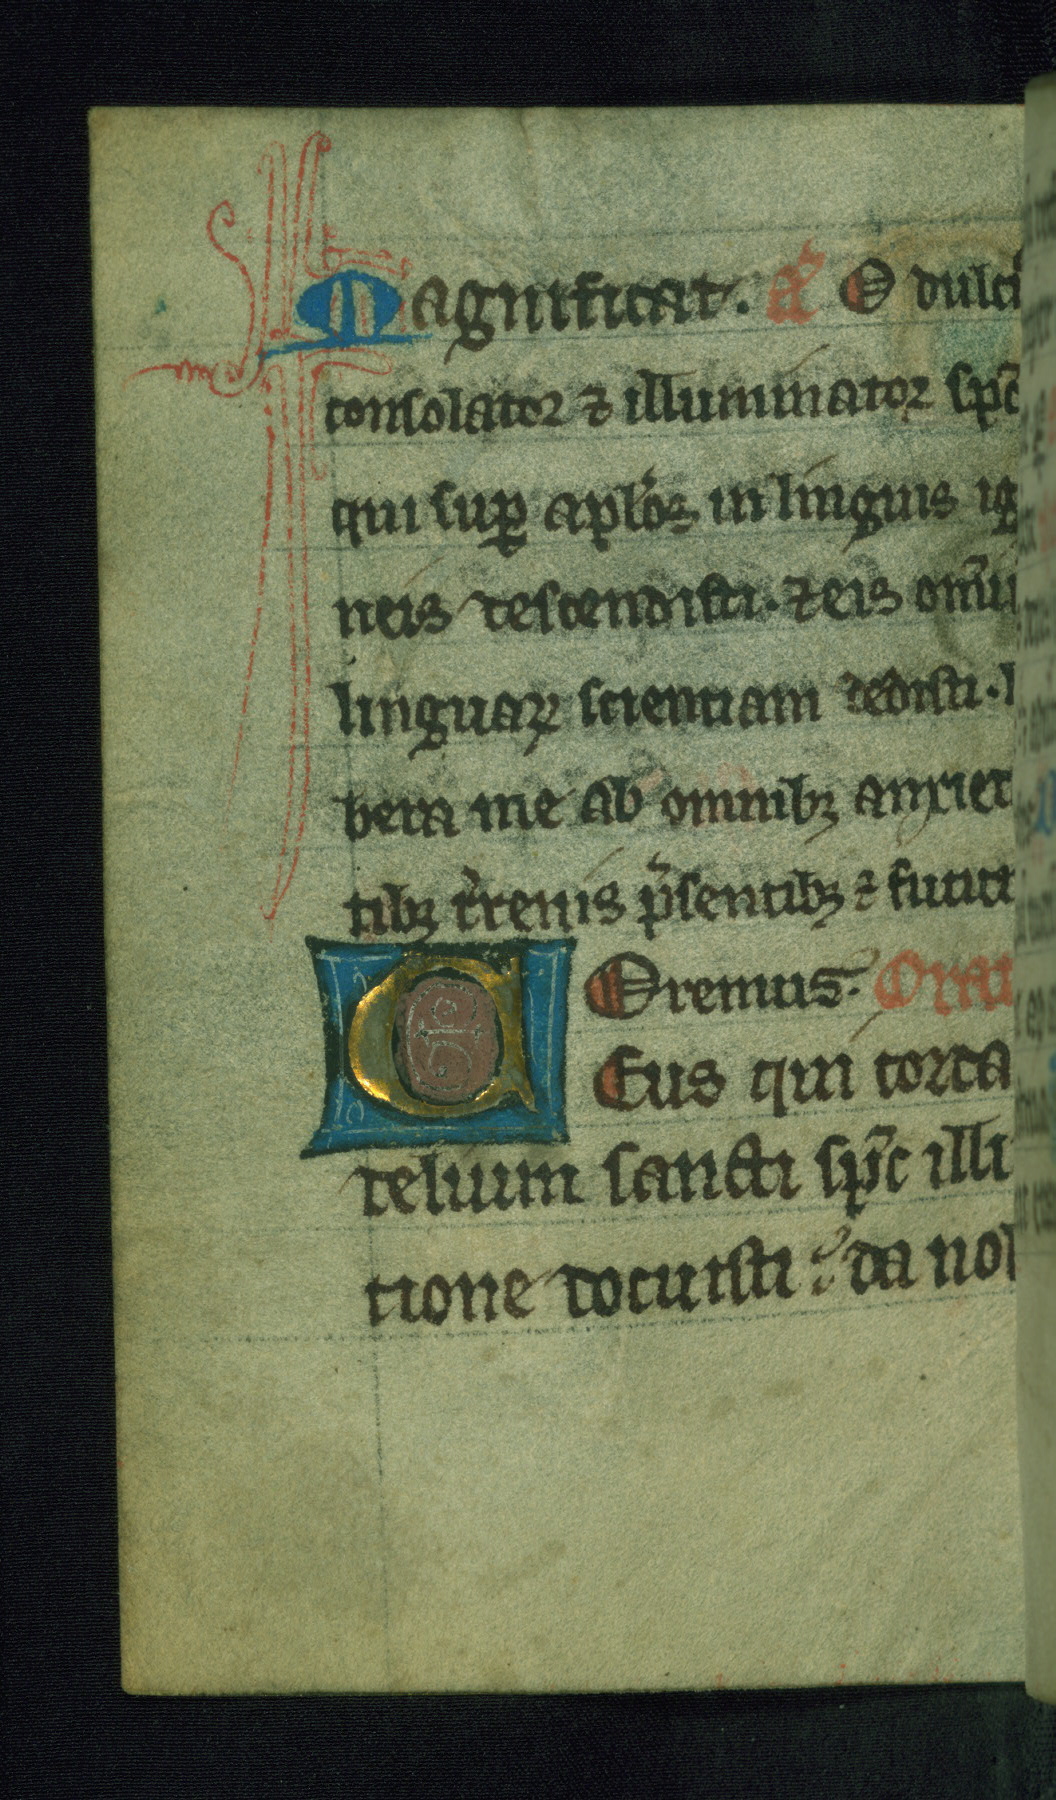 Magnificat. añ O dulcis
consolator ⁊ illuminator sp̄c
qui sup̱ apl̓os in linguis ig
neis descendisti. ⁊ eis om̄iū
linguaꝝ scientiam dedisti. l
bera me ab omnibꝫ anxiet
tibꝫ t̓renis p̓sentibꝫ ⁊ futut
Oremus. Orat
Eus qui corda
delium sancti sp̄c illi
tione docuisti : da no